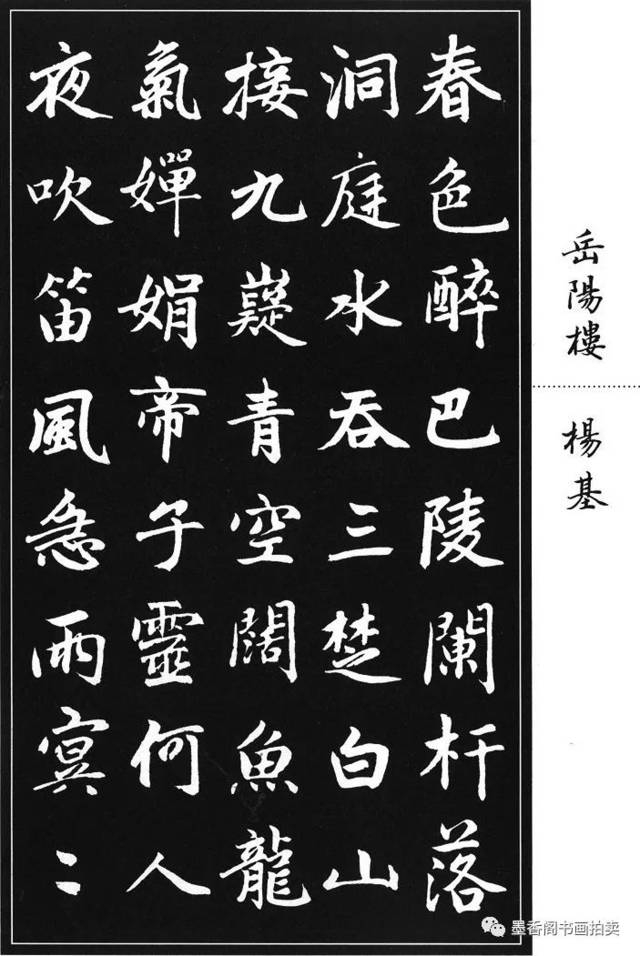 岳陽樓
楊基
春色醉巴陵闌杆落
洞庭水吞三楚白山
接九嶷青空闊魚龍
氣嬋娟帝子靈何人
夜吹笛風急雨寞〻
墨香阁书画拍卖